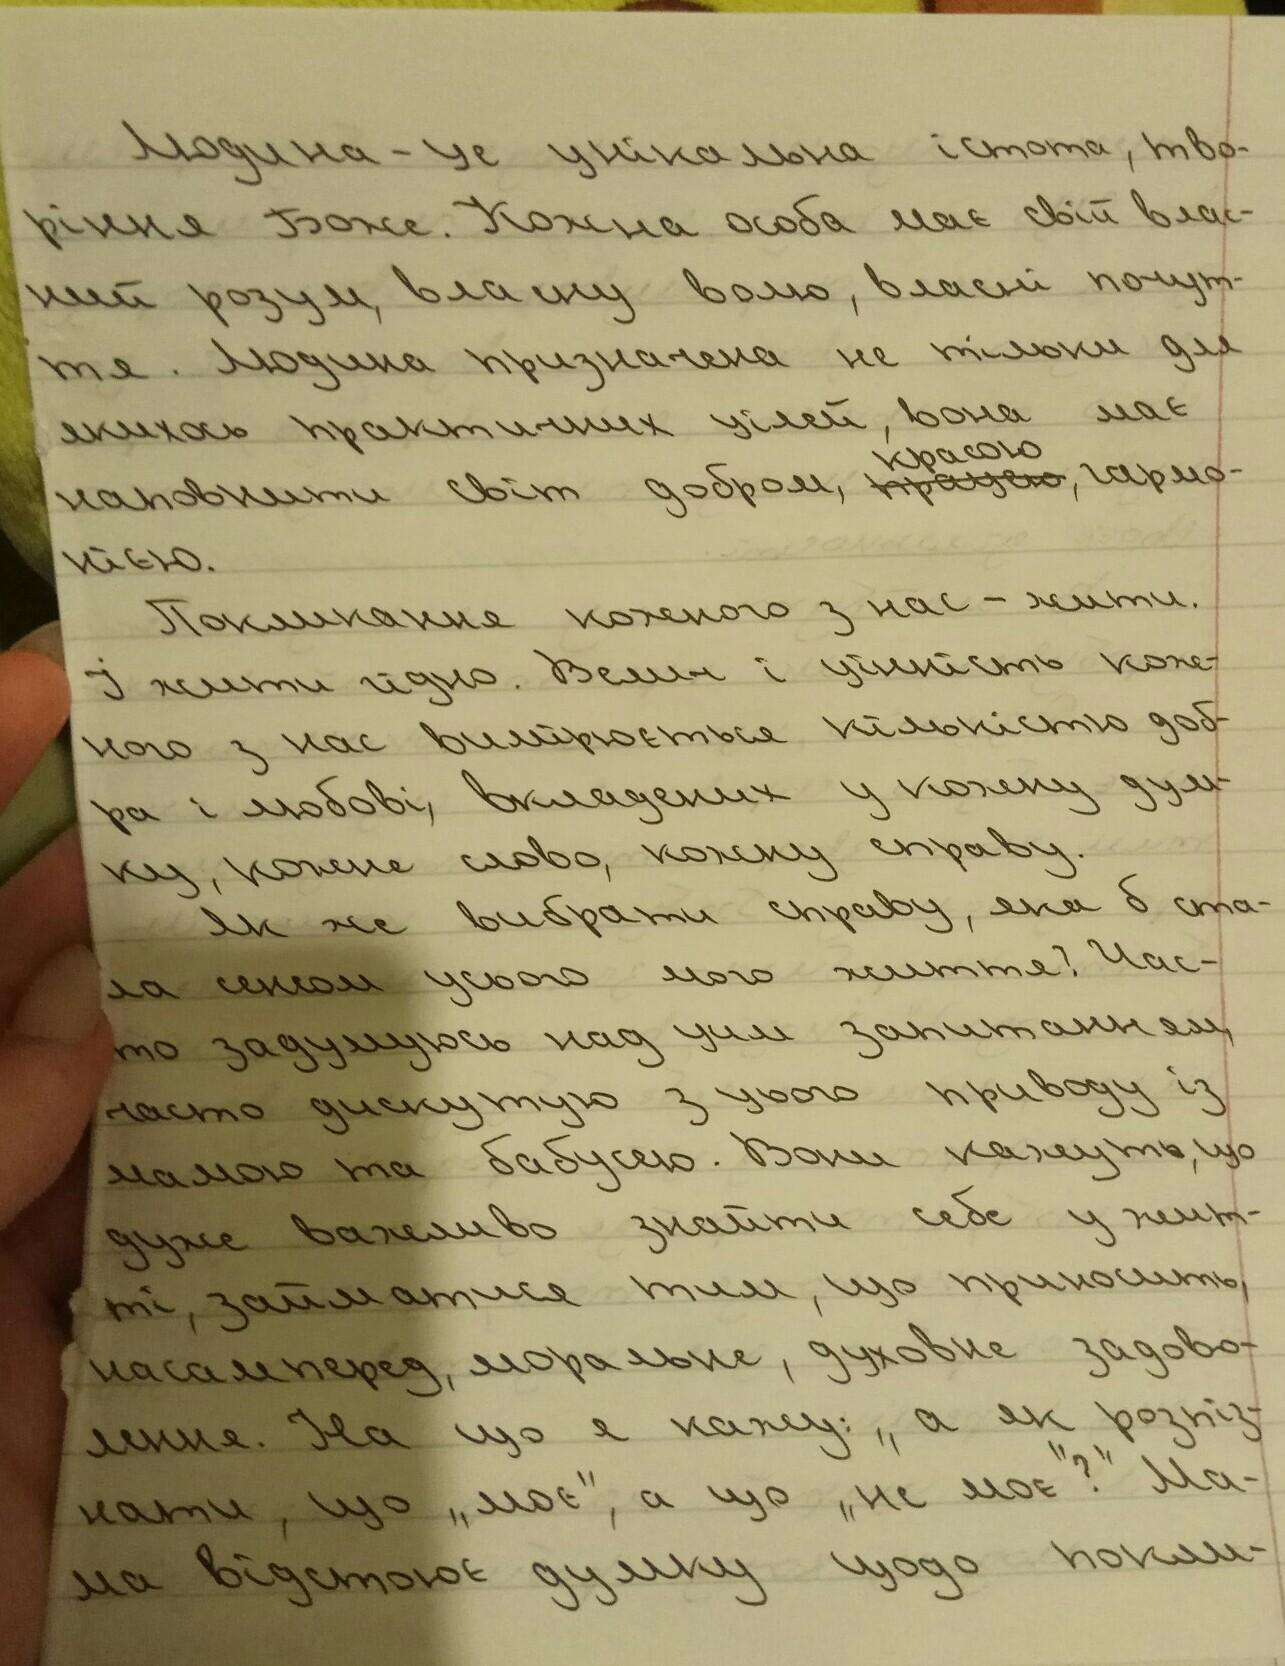 Людина - це унікальна істота, тво-
ріння Боже. Кожна особа має свій влас-
ний розум, власну волю, власні почут-
тя. Людина призначена не тільки для
якихось практичних цілей, вона має
наповнити світ добром, красою, гармо-
нією.
Покликання кожного з нас - жити.
І жити гідно. Велич і цінність кож-
ного з нас вимірюється кількістю доб-
ра і любові, вкладених у кожну дум-
ку, кожне слово, кожну справу.
Як же вибрати справу, яка б ста-
ла сенсом усього мого життя? Час-
то задумуюсь над цим запитанням,
часто дискутую з цього приводу із
мамою та бабусею. Вони кажуть, що
дуже важливо знайти себе у жит-
ті, займатися тим, що приносить,
насамперед, моральне, духовне задово-
лення. На що я кажу: „а як розпіз-
нати, що „моє", а що „не моє"?" Ма-
ма відстоює думку щодо покли-